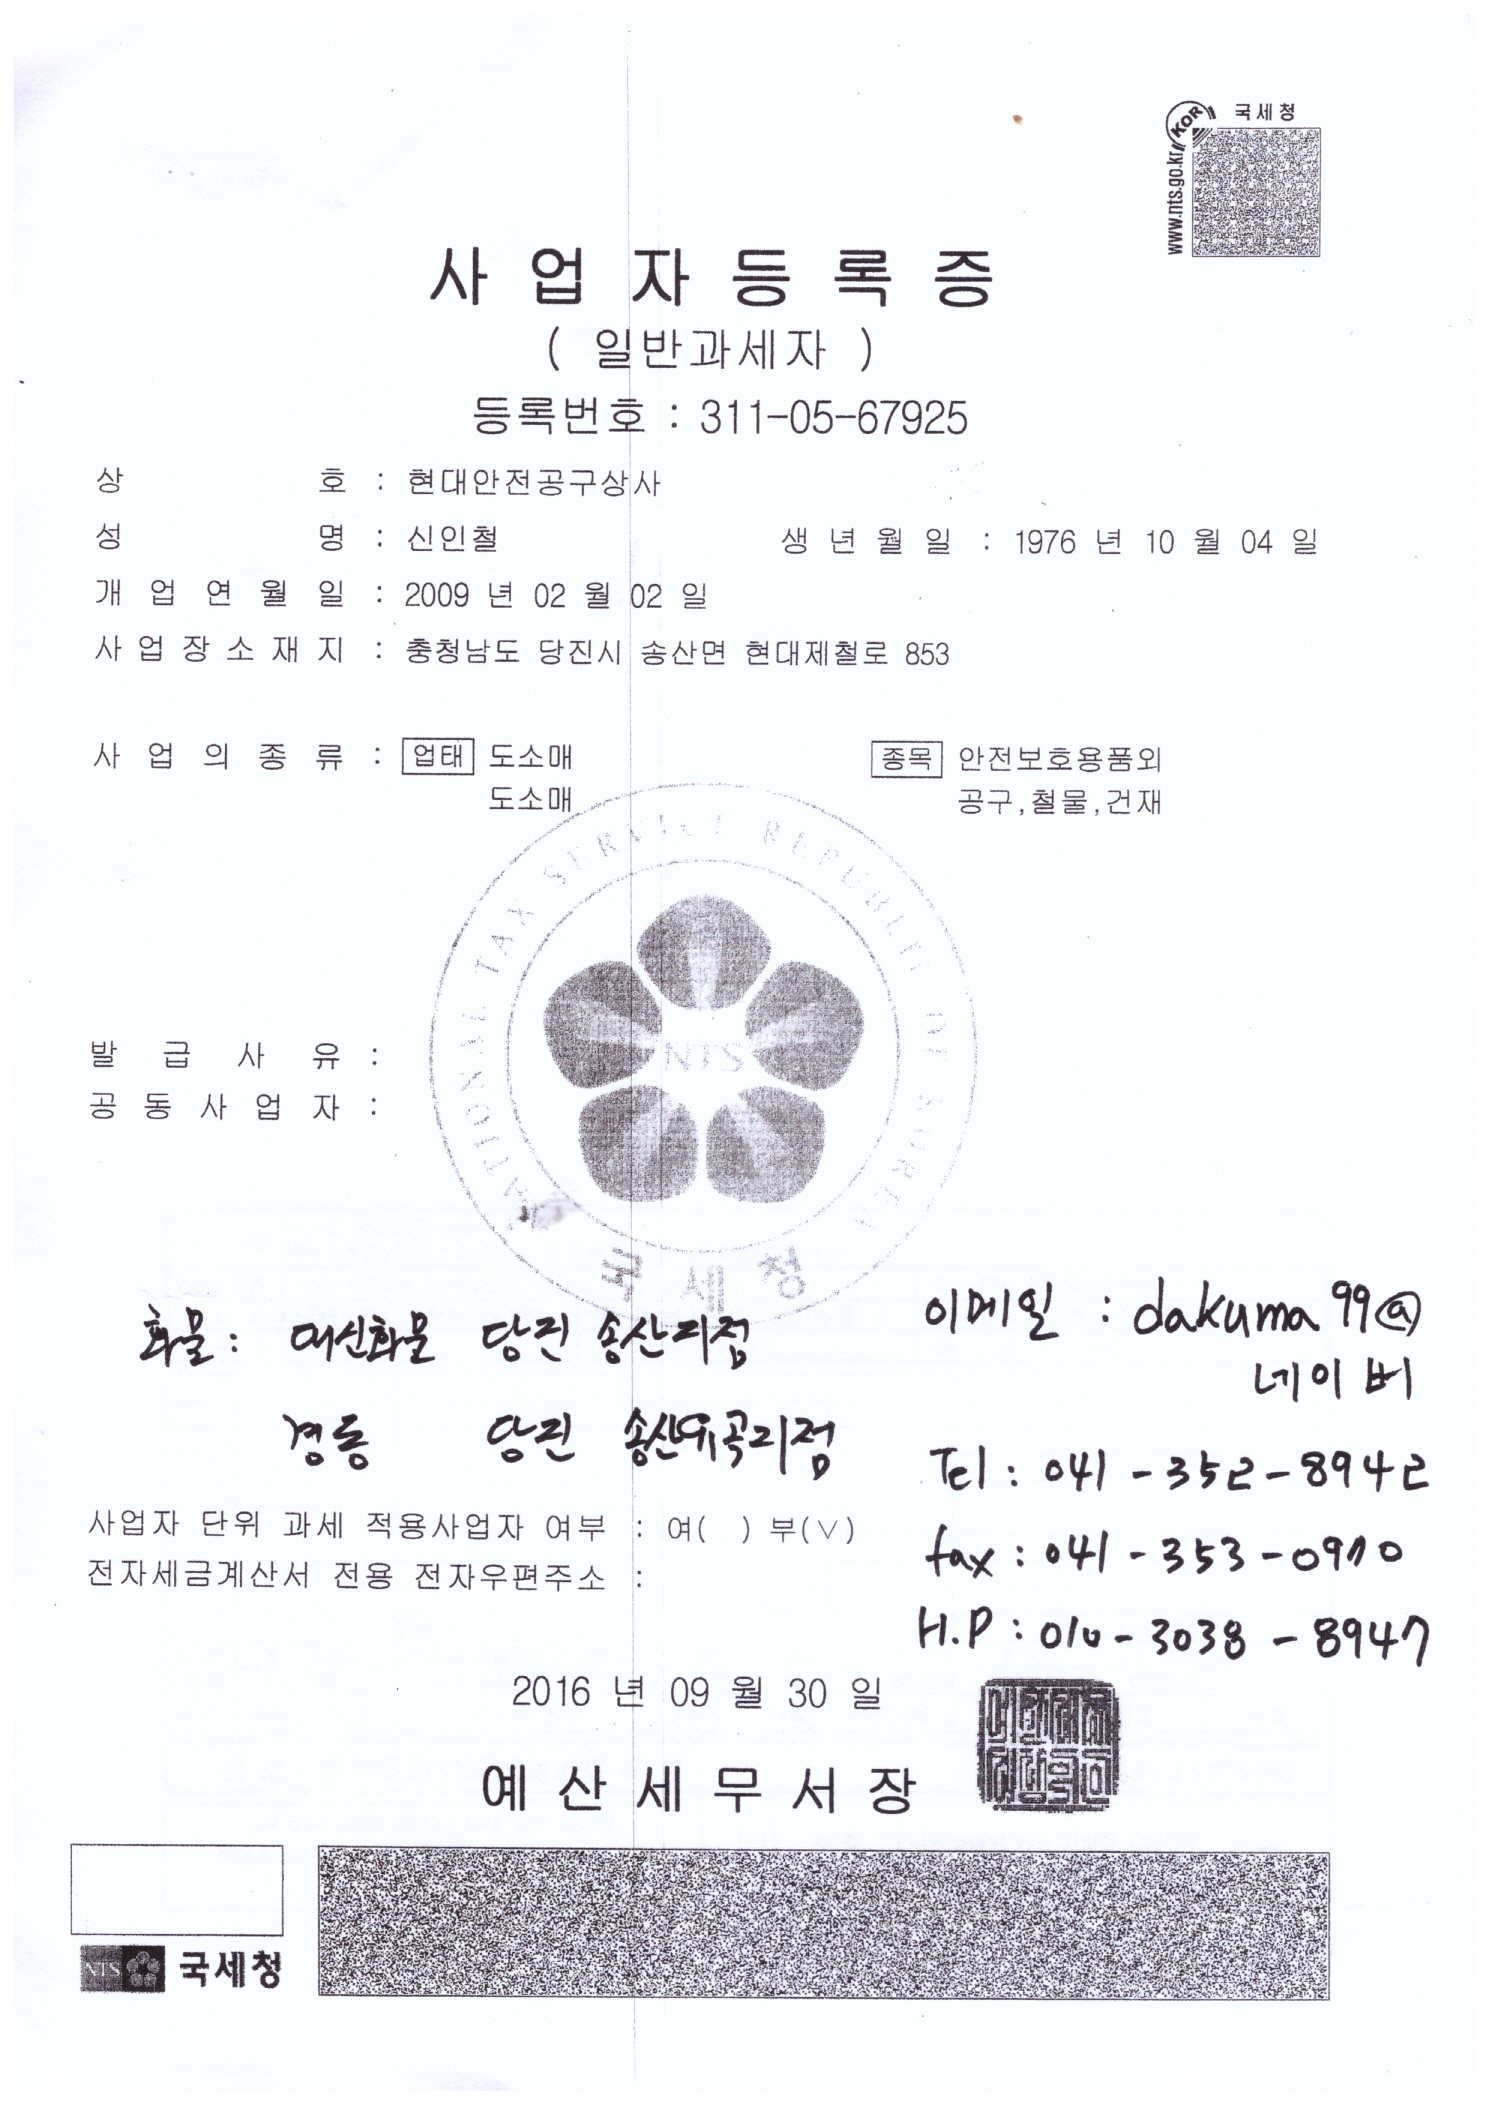 국세청
KOR
www.nts.go.kr
사업자등록증
( 일반과세자 )
등록번호 : 311-05-67925
상 호 : 현대안전공구상사
성 명 : 신인철 생 년 월 일 : 1976 년 10 월 04 일
개 업 연 월 일 : 2009 년 02 월 02 일
사 업 장 소 재 지 : 충청남도 당진시 송산면 현대제철로 853
사 업 의 종 류 : 업태 도소매 종목 안전보호용품외
도소매 공구,철물,건재
NATIONAL TAX SERVICE REPUBLIC OF KOREA
NTS
발 급 사 유 :
공 동 사 업 자 :
국세청
화물 : 대신화물 당진 송산지점
경동 당진 송산유곡지점
이메일 : dakuma99@
네이버
Tel : 041-352-8942
fax : 041-353-0970
H.P : 010-3038-8947
사업자 단위 과세 적용사업자 여부 : 여( ) 부(∨)
전자세금계산서 전용 전자우편주소 :
2016 년 09 월 30 일
예산세무서장
NTS 국세청